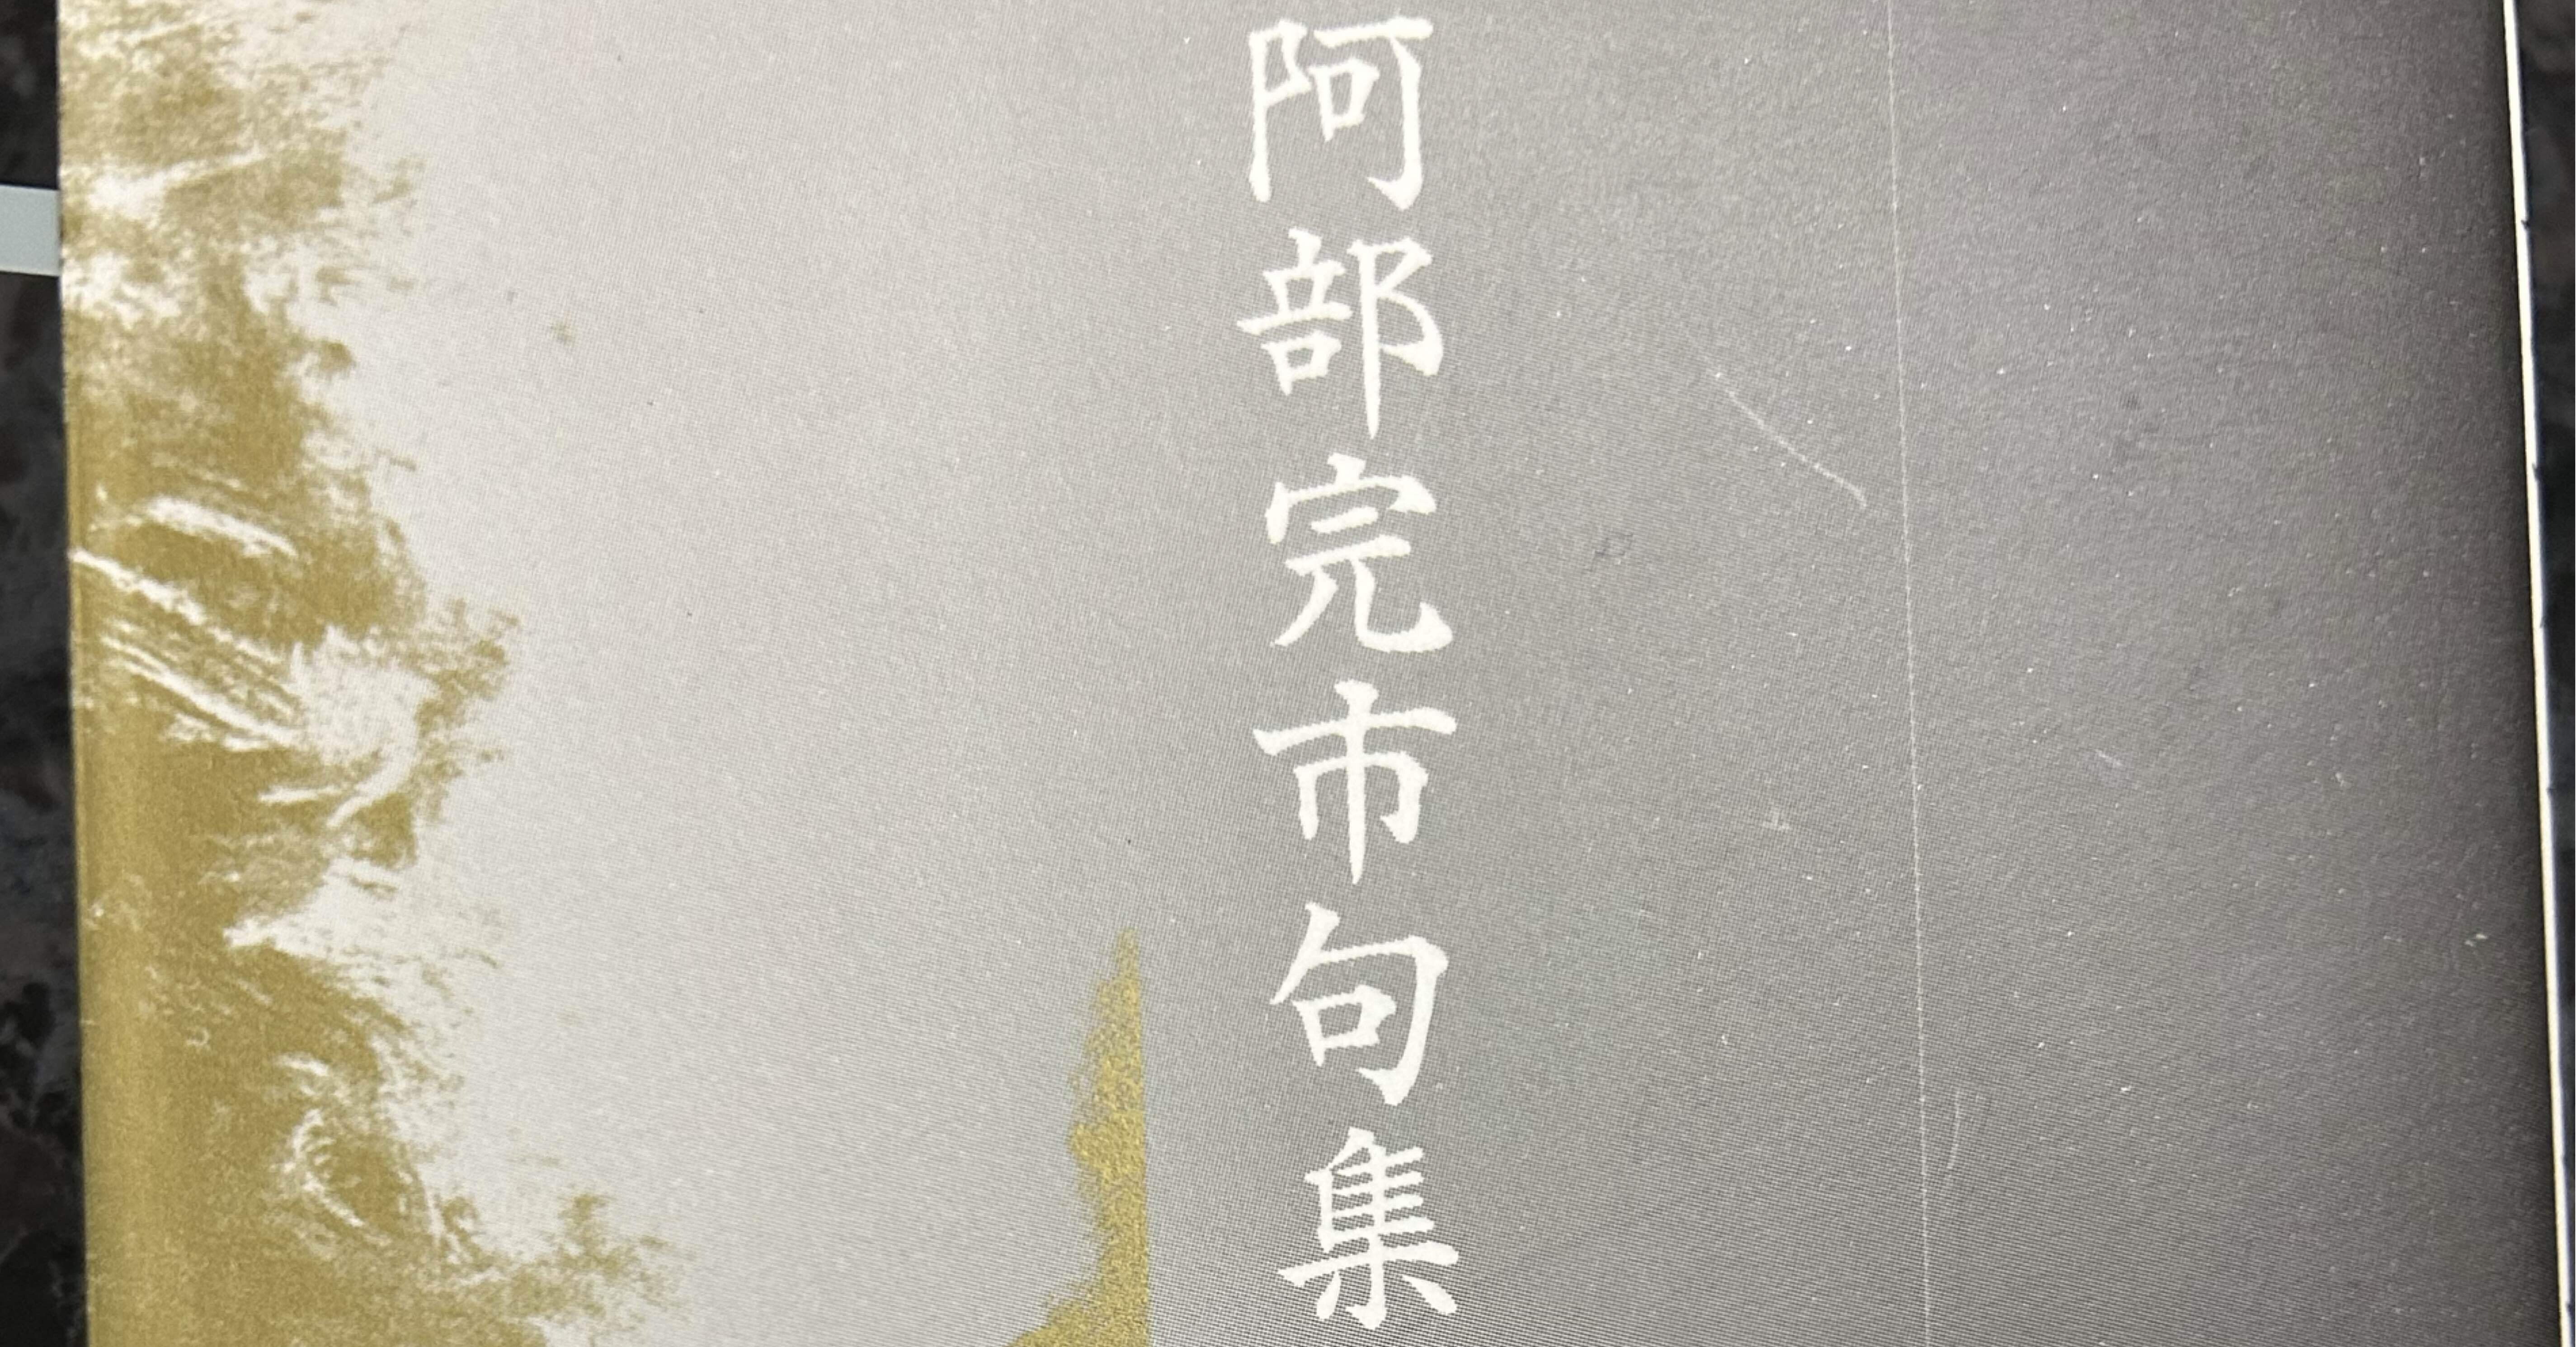 阿部完市句集